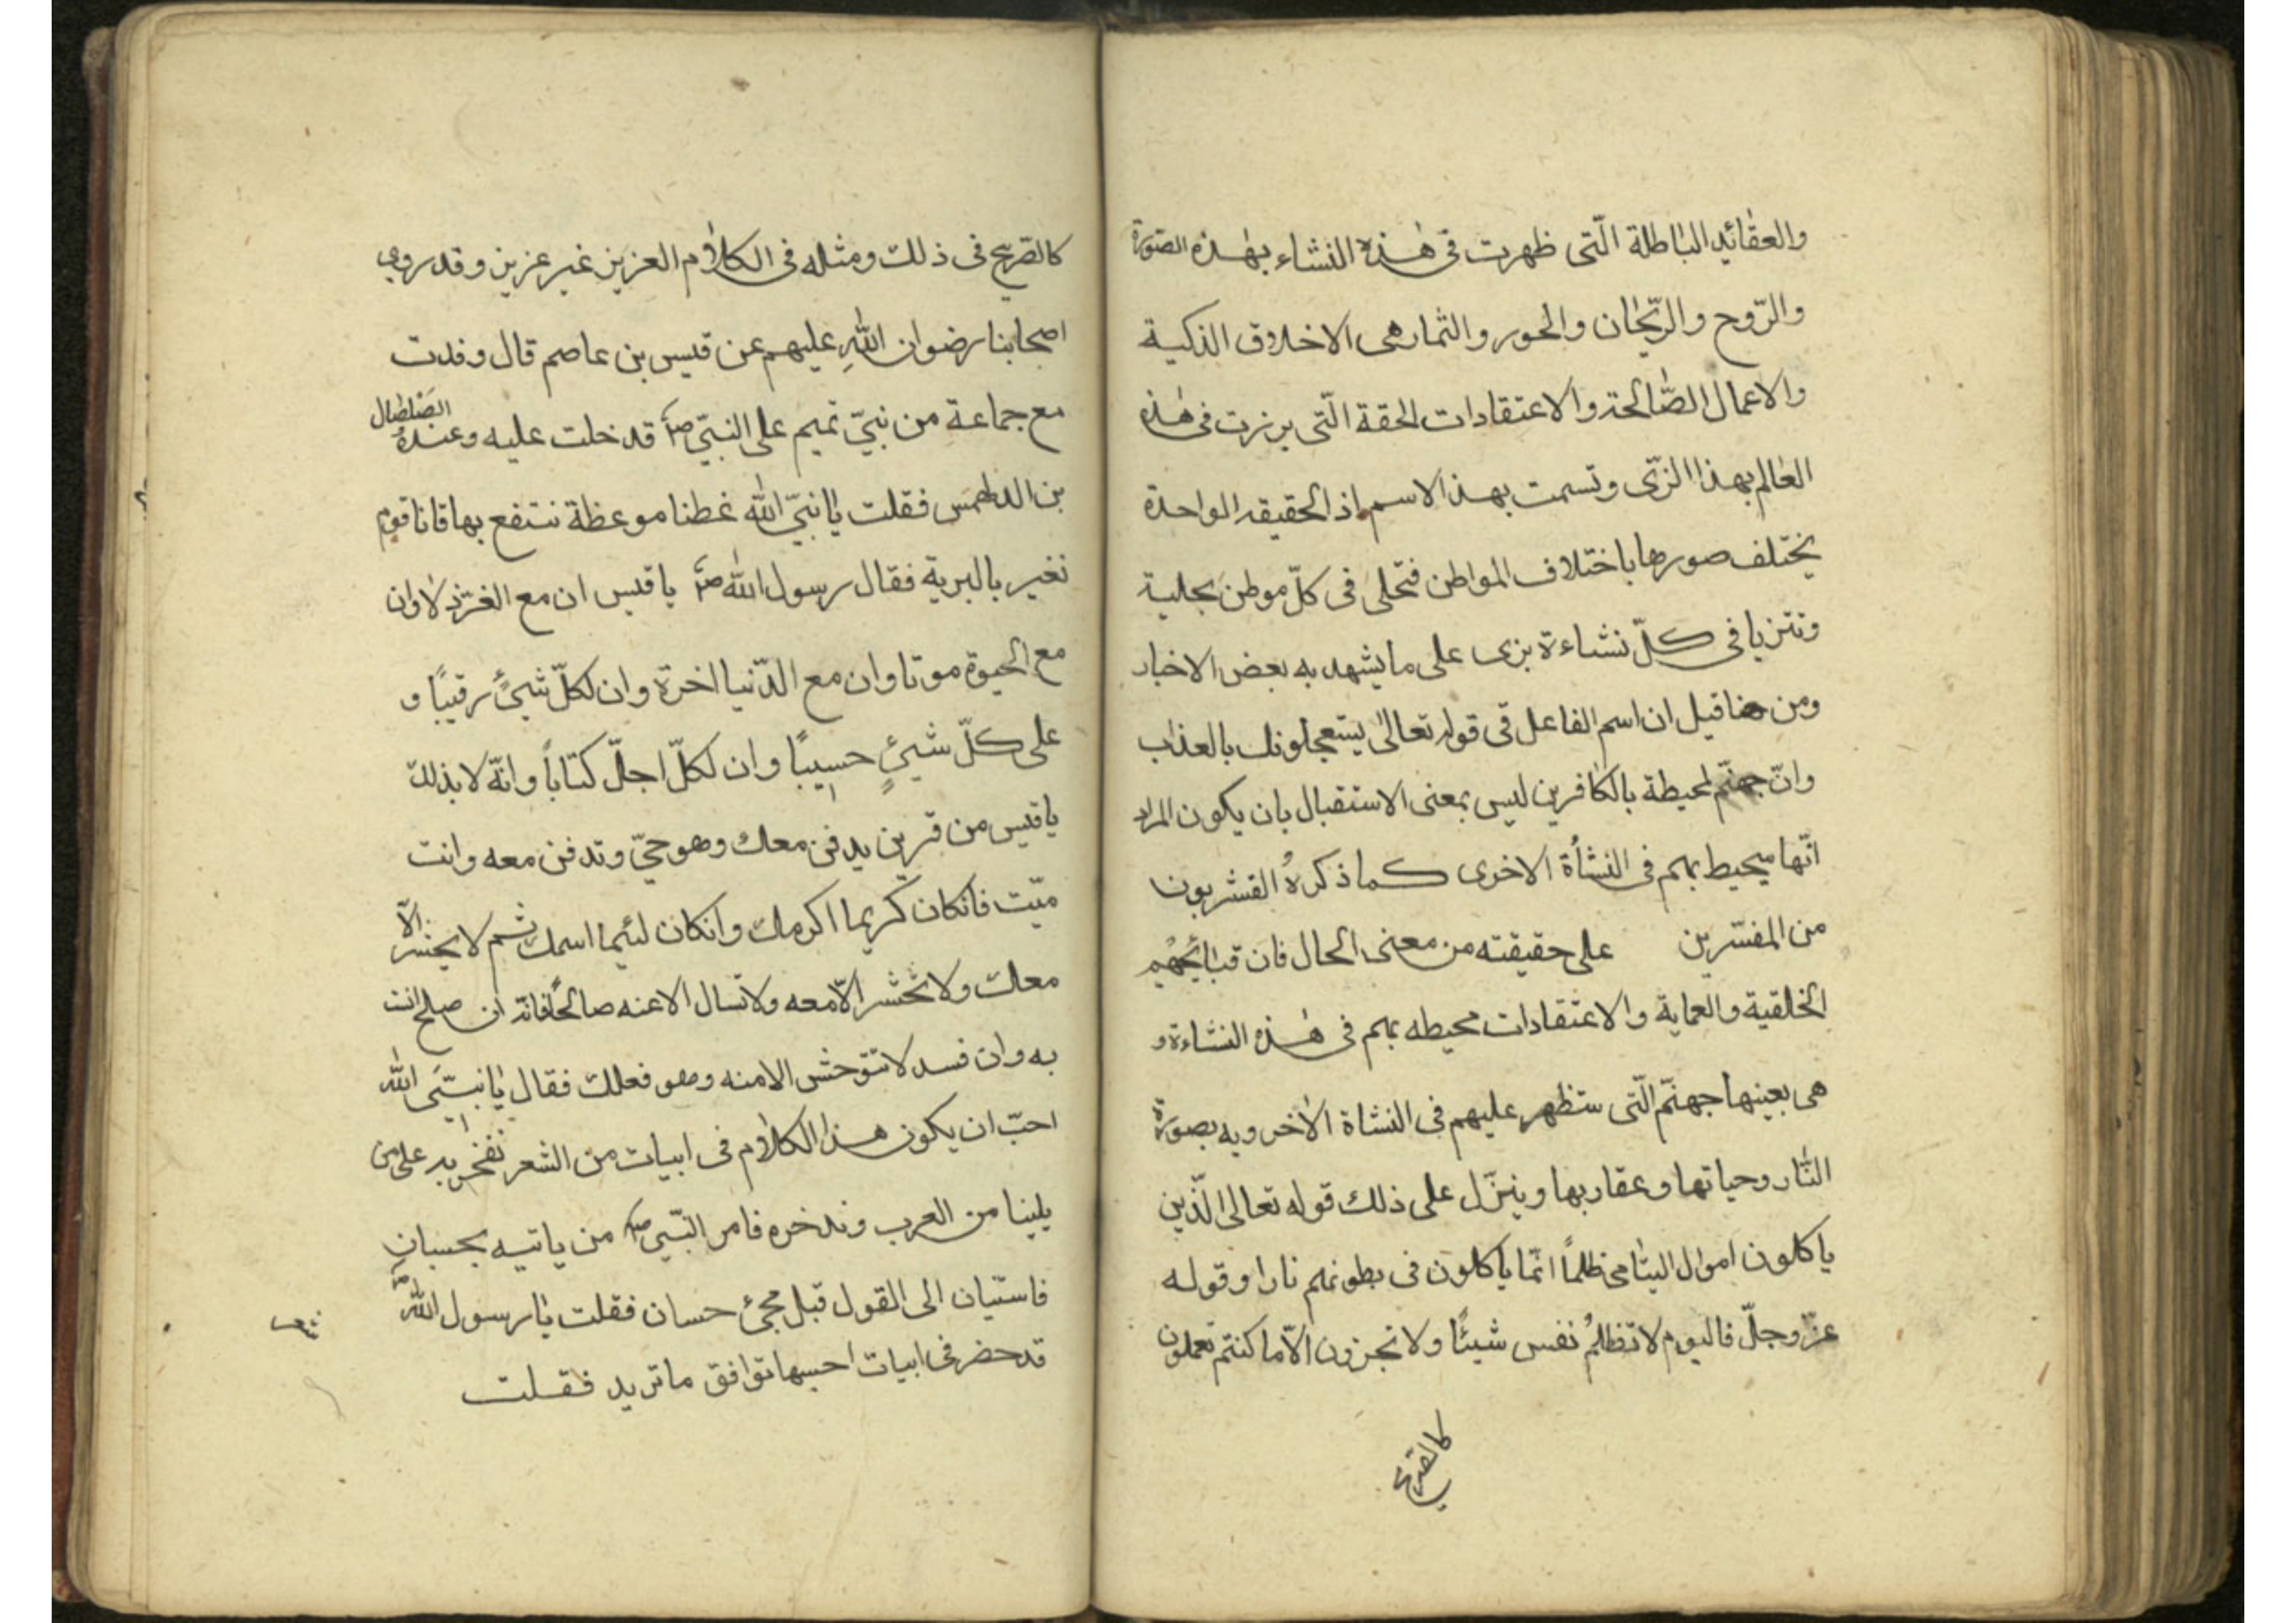 والعقائد الباطلة الّتى ظهرت فى هٰذه النشاء بهٰذه الصّورة
والرّوح والرّيحان والحور والثمار هى الاخلاق الذكية
والاعمال الصّالحة والاعتقادات الحقة الّتى برزت فى هٰذه
العالم بهذا الزىّ وتسمت بهذ الاسم اذ الحقيقة الواحدة
يختلف صورها باختلاف المواطن فتحلى فى كلّ موطن بحلية
وتتزيا فى كلّ نشاءة بزى على ما يشهد به بعض الاخبار
ومن هنا قيل ان اسم الفاعل فى قوله تعالىٰ يستعجلونك بالعذاب
وانّ جهنّم لمحيطة بالكافرين ليس بمعنى الاستقبال بان يكون المراد
انّها سيحيط بهم فى النشأة الاخرى كما ذكرهُ القشريون
من المفسّرين على حقيقته من معنى الحال فان قبائحهم
الخلقية والعماية والاعتقادات محيطه بهم فى هٰذه النشاءة و
هى بعينها جهنّم الّتى ستظهر عليهم فى النشاة الأخرويه بصورة
النّار وحياتها وعقاربها وينزّل على ذلك قوله تعالى الّذين
ياكلون اموال اليتامى ظلماً انّما ياكلون فى بطونهم نارا وقوله
عزّ وجلّ فاليوم لا تظلمُ نفس شيئًا ولا تجزون الّا ما كنتم تعملون
كالصّريح
كالصّريح فى ذلك ومثله فى الكلام العزيز غير عزيز وقد روى
اصحابنا رضوان اللّٰهِ عليهم عن قيس بن عاصم قال وفدت
مع جماعة من نبىّ تميم على النبىّ صۤ قد خلت عليه وعندهُ الصّلصال
بن الدلهمس فقلت يا نبىّ اللّٰه غطنا موعظة ننتفع بها فانا قوم
نغير بالبرية فقال رسول اللّٰه صۤ يا قيس ان مع الغرّ ذلا وان
مع الحيوة موتا وان مع الدّنيا اخرة وان لكلّ شىءٍ رقيبًا و
على كلّ شيئٍ حسيبًا وان لكلّ اجلّ كتاباً وانّه لا بدلك
يا قيس من قرين يدفن معك وهو حىّ وتدفن معه وانت
ميّت فانكان كريما اكرمك وانكان لئيما اسمك ثم لا يحشر الّا
معك ولا تحشر الّا معه ولا تسال الا عنه صالحًا فانّه ان صلح انت
به وان فسد لا تتوحش الا منه وهو فعلك فقال يا نبىّ اللّٰه
احبّ ان يكون هذا الكلام فى ابيات من الشعر نفخر به على من
يلينا من العرب وندخره فامر النّبىّ صۤ من ياتيه بحسبان
فاستبان الى القول قبل مجئ حسان فقلت يا رسول اللّٰه صۤ
قد حضر فى ابيات احسبها توافق ما تريد فقلت